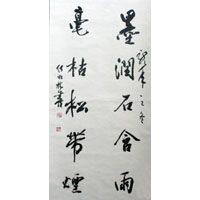 墨潤石含雨
毫枯松帶煙
書